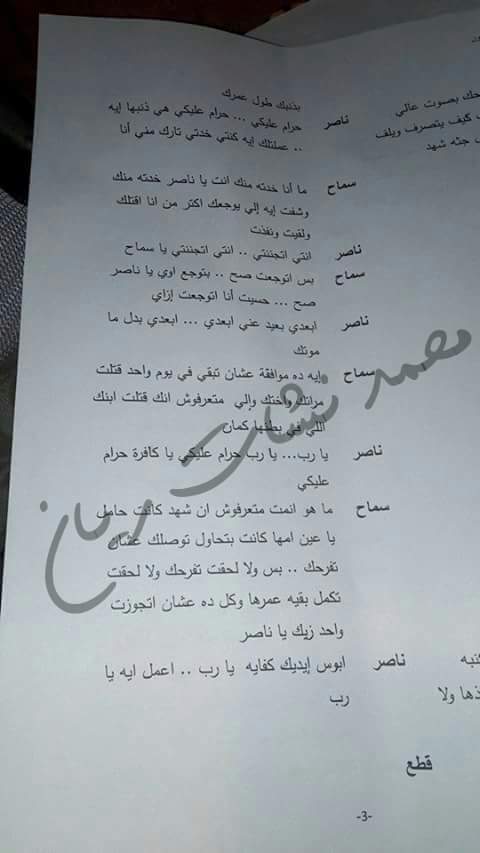 بذنبك طول عمرك
ناصر حرام عليكي ... حرام عليكي هي ذنبها إيه
.. عملتلك إيه كنتي خدتي تارك مني أنا
سماح ما أنا خدته منك انت يا ناصر خدته منك
وشفت إيه إلي يوجعك اكتر من انا اقتلك
ولقيت ونفذت
ناصر انتي اتجننتي .. انتي اتجننتي يا سماح
سماح بس اتوجعت صح .. بتوجع اوي يا ناصر
صح ... حسيت أنا اتوجعت إزاي
ناصر ابعدي بعيد عني ابعدي ... ابعدي بدل ما
موتك
سماح وإيه ده موافقة عشان تبقي في يوم واحد قتلت
مراتك واختك وإلي متعرفوش انك قتلت ابنك
اللي في بطنها كمان
ناصر يا رب... يا رب حرام عليكي يا كافرة حرام
عليكي
سماح ما هو انمت متعرفوش ان شهد كانت حامل
يا عين امها كانت بتحاول توصلك عشان
تفرحك .. بس ولا لحقت تفرحك ولا لحقت
تكمل بقيه عمرها وكل ده عشان اتجوزت
واحد زيك يا ناصر
ناصر ابوس إيديك كفايه يا رب .. اعمل ايه يا
رب
قطع
-3-
حك بصوت عالي
كيف يتصرف ويلف
جثه شهد
كتبه
ذها ولا
محمد نشات ريحان